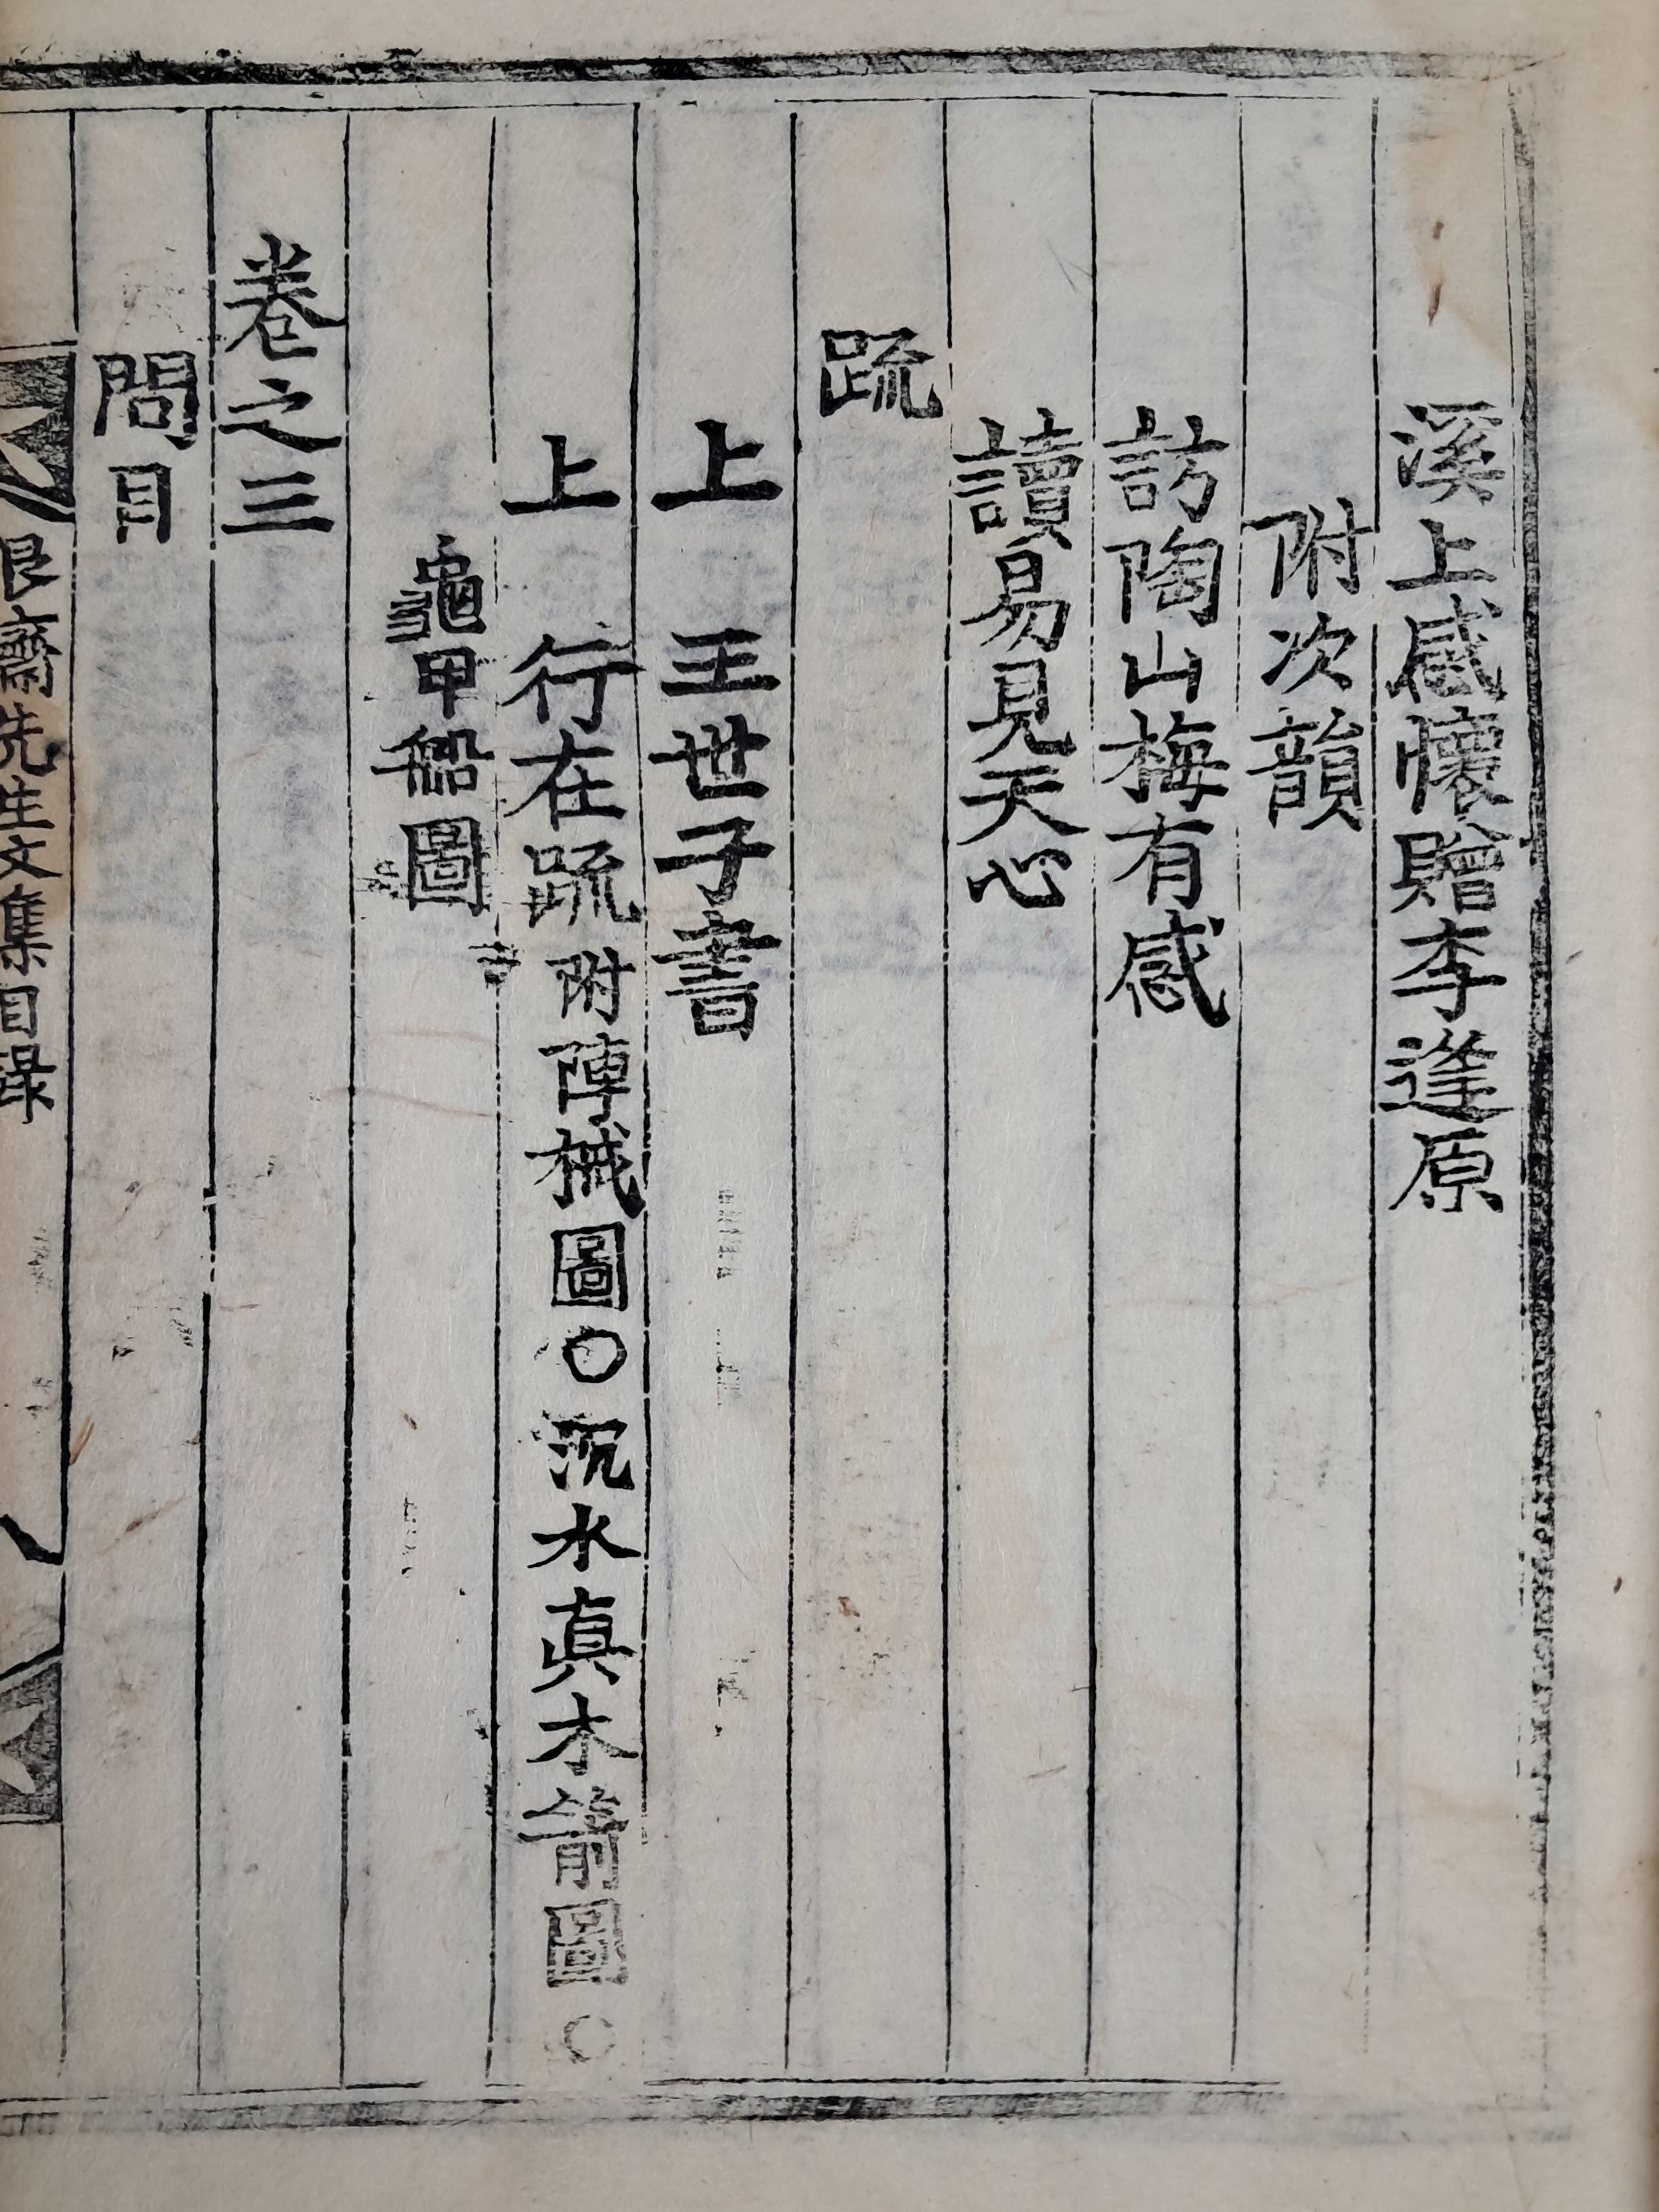 溪上感懷贈李逢原
附次韻
訪陶山梅有感
讀易見天心
疏
上 王世子書
上 行在疏 附陣械圖○沉水眞木箭圖○
龜甲船圖
卷之三
問目
艮齋先生文集目錄